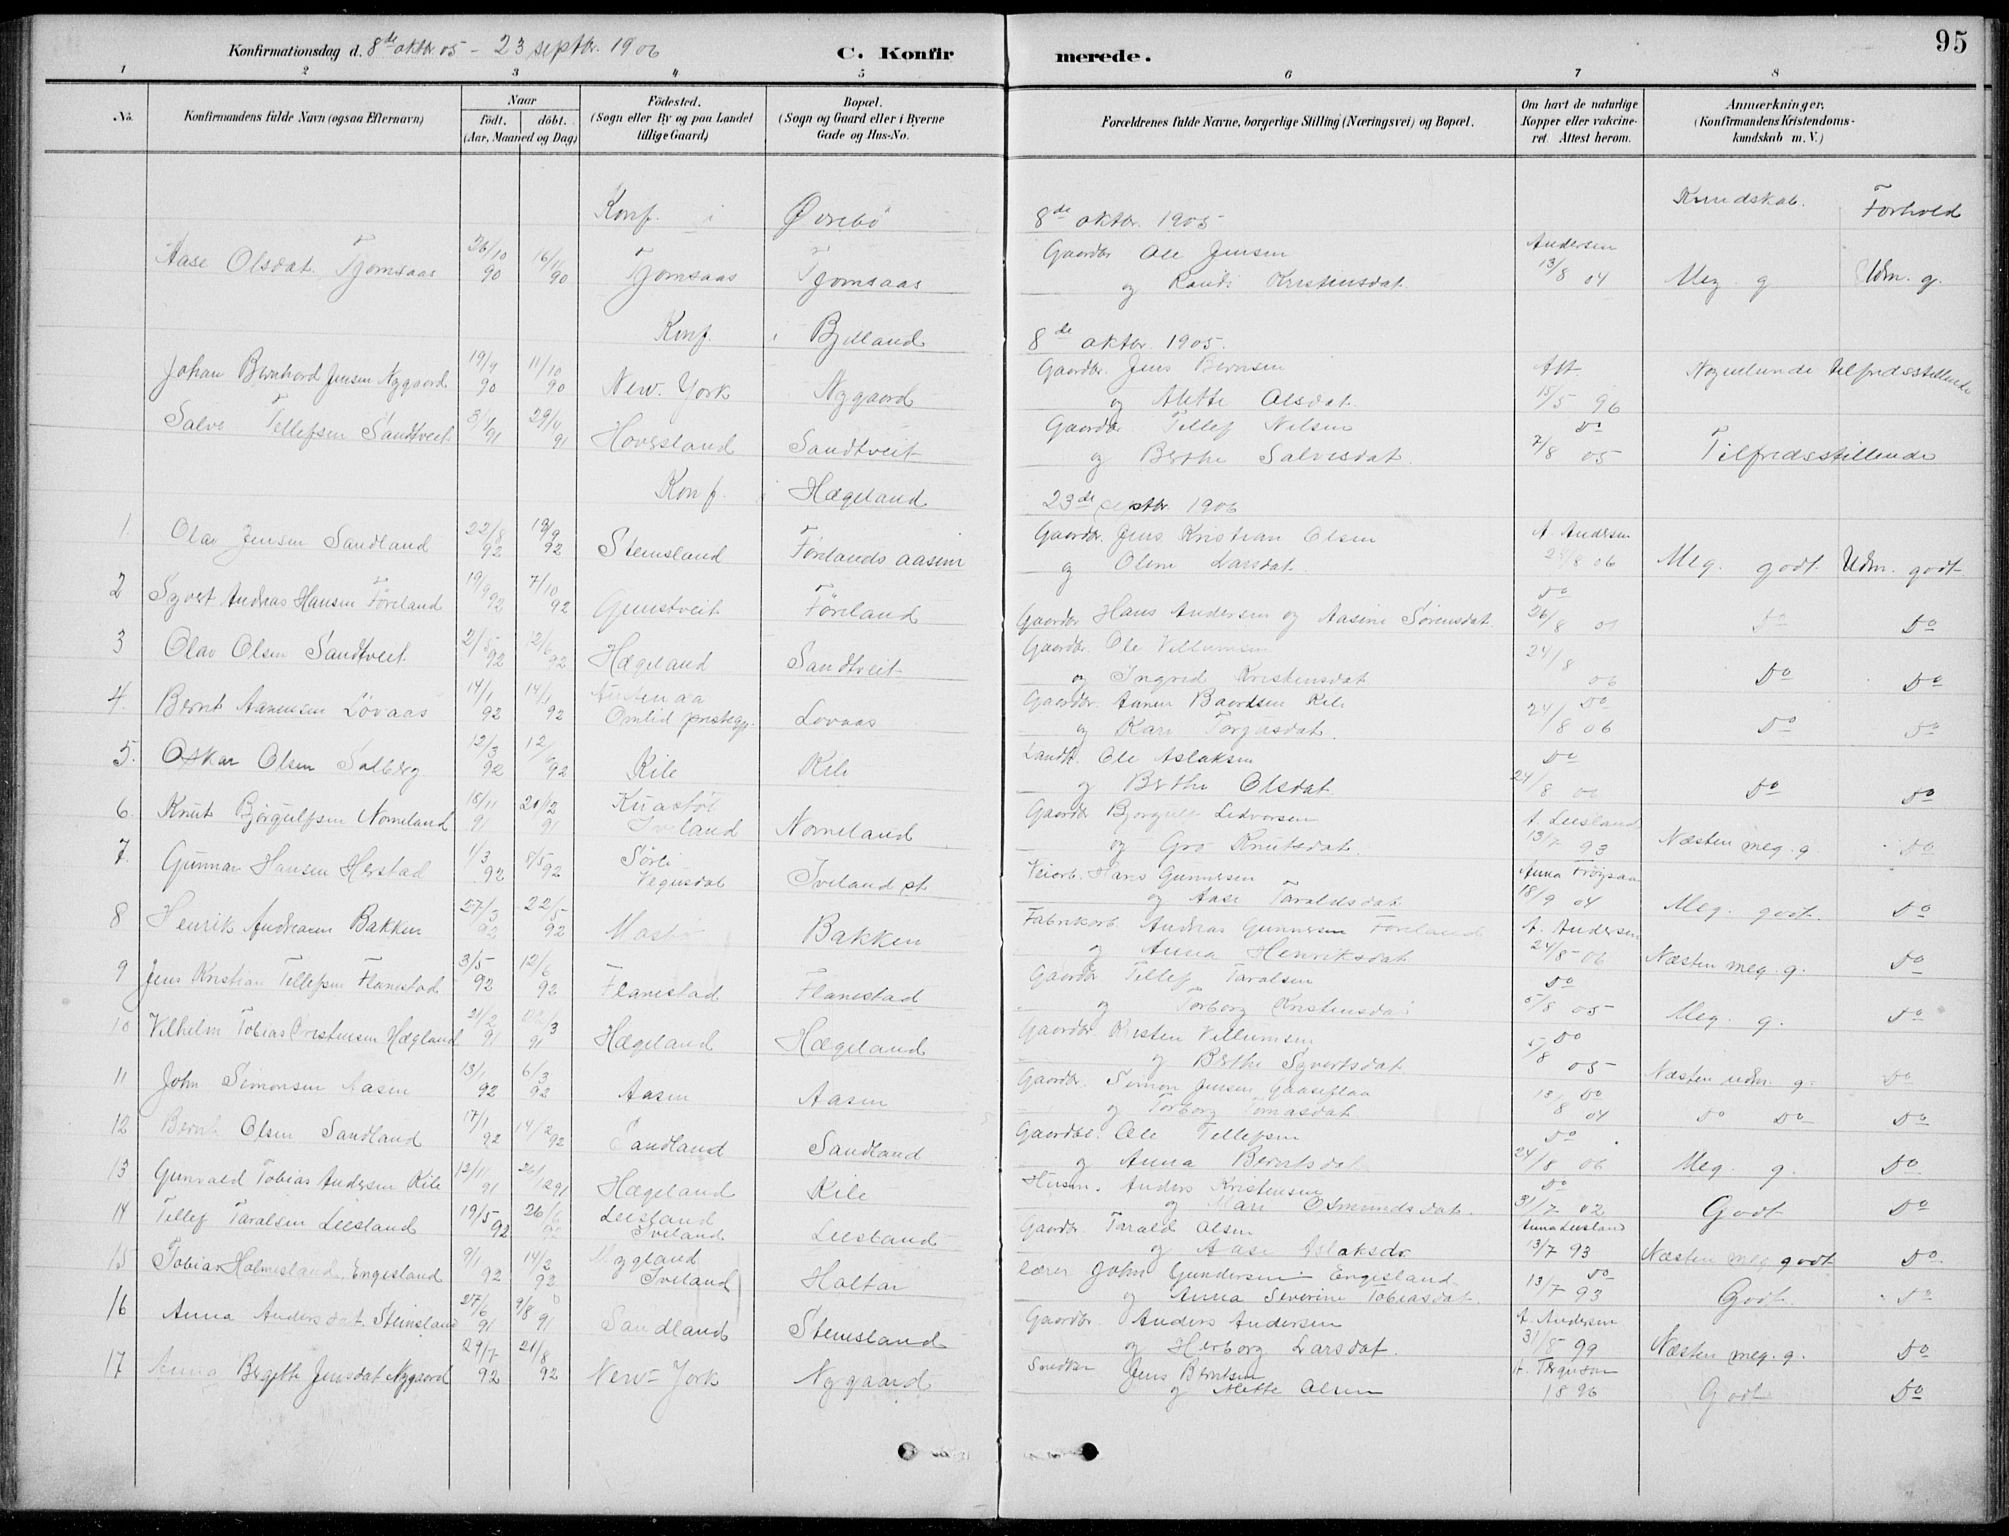 95
Konfirmationsdag d. 8de oktbr 05 - 23 septbr. 1906
C. Konfirmerede.
1 2 3 4 5 6 7 8
No. Konfirmandens fulde Navn (ogsaa Efternavn) Naar födt. döbt. (Aar, Maaned og Dag) Födested. (Sogn eller By og paa Landet tillige Gaard) Bopæl. (Sogn og Gaard eller i Byerne Gade og Hus-No. Forældrenes fulde Navne, borgerlige Stilling (Næringsvei) og Bopæl. Om havt de naturlige Kopper eller vakcineret. Attest herom. Anmærkninger. (Konfirmandens Kristendomskundskab m. V.)
Konf. i Øvrebö 8de oktbr. 1905 Kundskab. Forhold
Aase Olsdat. Tjomsaas 26/10 90 16/11 90 Tjomsaas Tjomsaas Gaardbr Ole Jensen Andersen
og Randi Kristensdat. 13/8 04 Meg. g Udm. g.
Konf. i Bjelland 8de oktbr. 1905.
Johan Bernhard Jensen Nygaard 19/9 90 11/10 90 New. York Nygaard Gaardbr. Jens Berntsen Att Nogenlunde tilfredsstillende
og Alette Olsdat. 15/5 96
Salve Tellefsen Sandtveit 3/1 91 29/4 91 Hovesland Sandtveit Gaardbr Tellef Nilsen Do
og Berthe Salvesdat. 7/8 05 Tilfredsstillende
Konf. i Hægeland 23de septbr. 1906
1. Olav Jensen Sandland 22/8 92 19/9 92 Stemsland Förlandsaasen Gaardbr. Jens Kristian Olsen A Andersen
og Oline Larsdat. 24/8 06 Meg. godt. Udm. godt
2 Syvert Andreas Hansen Föreland 19/9 92 7/10 92 Gunstveit Föreland Gaardbr Hans Andersen og Aasine Sörensdat. Do 26/8 Do Do
3 Olav Olsen Sandtveit 2/5 92 12/6 92 Hægeland Sandtveit Gaardbr. Ole Villumsen 24/8
og Ingrid Kristensdat 06 Do Do
4. Bernt Aanensen Lövaas 14/1 92 14/1 92 Omlid prestegj. Lovaas Gaardbr. Aanen Baardsen Kile Do
og Kari Torgusdat. 24/8 06 Do Do
5. Oskar Olsen Solberg 12/3 92 12/6 92 Kile Kile Landh. Ole Aslaksen Do
og Berthe Olsdat. 24/8 06 Do Do
6. Knut Bjorgulfsen Nomeland 18/11 91 20/12 91 Iveland Nomeland Gaardbr Bjorgulf Ledvorsen A. Leesland
og Gro Knutsdat. 13/7 93 Næsten meg. g Do
7. Gunnar Hansen Herstad 1/3 92 8/5 92 Sörli Vegusdal Iveland st Veiarb. Hans Gunnersen Anna Frøysaa
og Aase Taraldsdat 18/9 04 Meg. godt. Do
8 Henrik Andreasen Bakken 27/3 92 22/5 92 Bakken Fabrikarb Andreas Gunnersen Foreland A. Andersen
og Anna Henriksdat 24/8 06 Næsten meg. g. Do
9 Jens Kristian Tellefsen Flanestad 3/5 92 12/6 92 Flanestad Flanestad Gaardbr Tellef Taralsen Do
og Torborg Kristensdat 5/8 05 Meg. g. Do
10 Vilhelm Tobias Kristensen Hægland 21/2 91 3 91 Hægeland Hægeland Gaardbr Kristen Villumsen Do
og Berthe Syvertsdat 5/8 05 Næsten udm. g. Do
11 John Simonsen Aasen 13/1 92 6/3 92 Aasen Aasen Gaardbr. Simon Jensen Gaaseflaa Do
og Torborg Tomasdat. 13/8 04 Do Do Do
12 Bernt Olsen Sandland 17/1 92 14/2 92 Sandland Sandland Gaardbr. Ole Tellefsen Do
og Anna Berntsdat 24/8 06 Meg. g. Do
13 Gunvald Tobias Andersen Kile 12/11 91 26/12 91 Hægeland Kile Husm. Anders Kristensen Do
og Mari Osmundsdat. 31/7 02 Godt Do
14 Tellef Taralsen Leesland 19/5 92 26/6 92 Leesland Iveland Leesland Gaardbr Tarald Olsen Anna Leesland
og Aase Aslaksdr 13/7 93 Næsten meg godt Do
15 Tobias Holmesland Engesland 9/1 92 14/2 92 Mygland Iveland Holtar lærer John Gundersen Engesland Do
og Anna Severine Tobiasdat. 13/7 93 Godt. Do
16 Anna Andersdat. Steinsland 27/6 91 9/8 91 Sandland Stemsland Gaardbr. Anders Andersen A. Andersen
og Herborg Larsdat. 31/8 99 Næsten meg. g. Do
17 Anna Bergithe Jensdat Nygaard 29/7 92 21/8 92 New-York Nygaard Snedker Jens Berntsen A. Torgusson
og Alette Olsen 1896 Godt Do